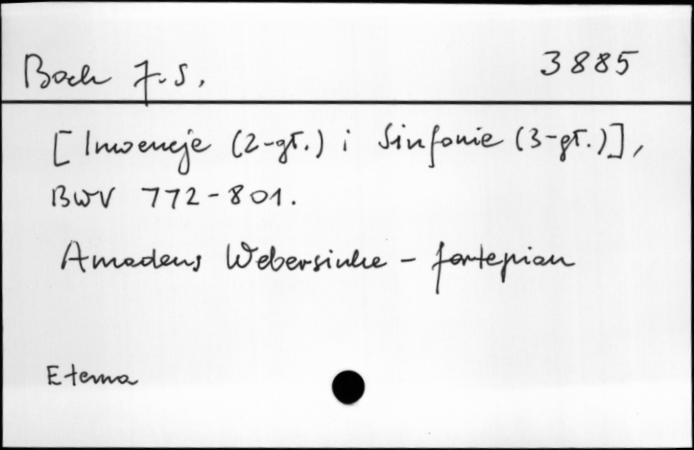 Bach J.S. 3885
[Inwencje (2-gł.) i Sinfonie (3-gł.)],
BWV 772-801.
Amadeus Webersinke - fortepian
Eterna